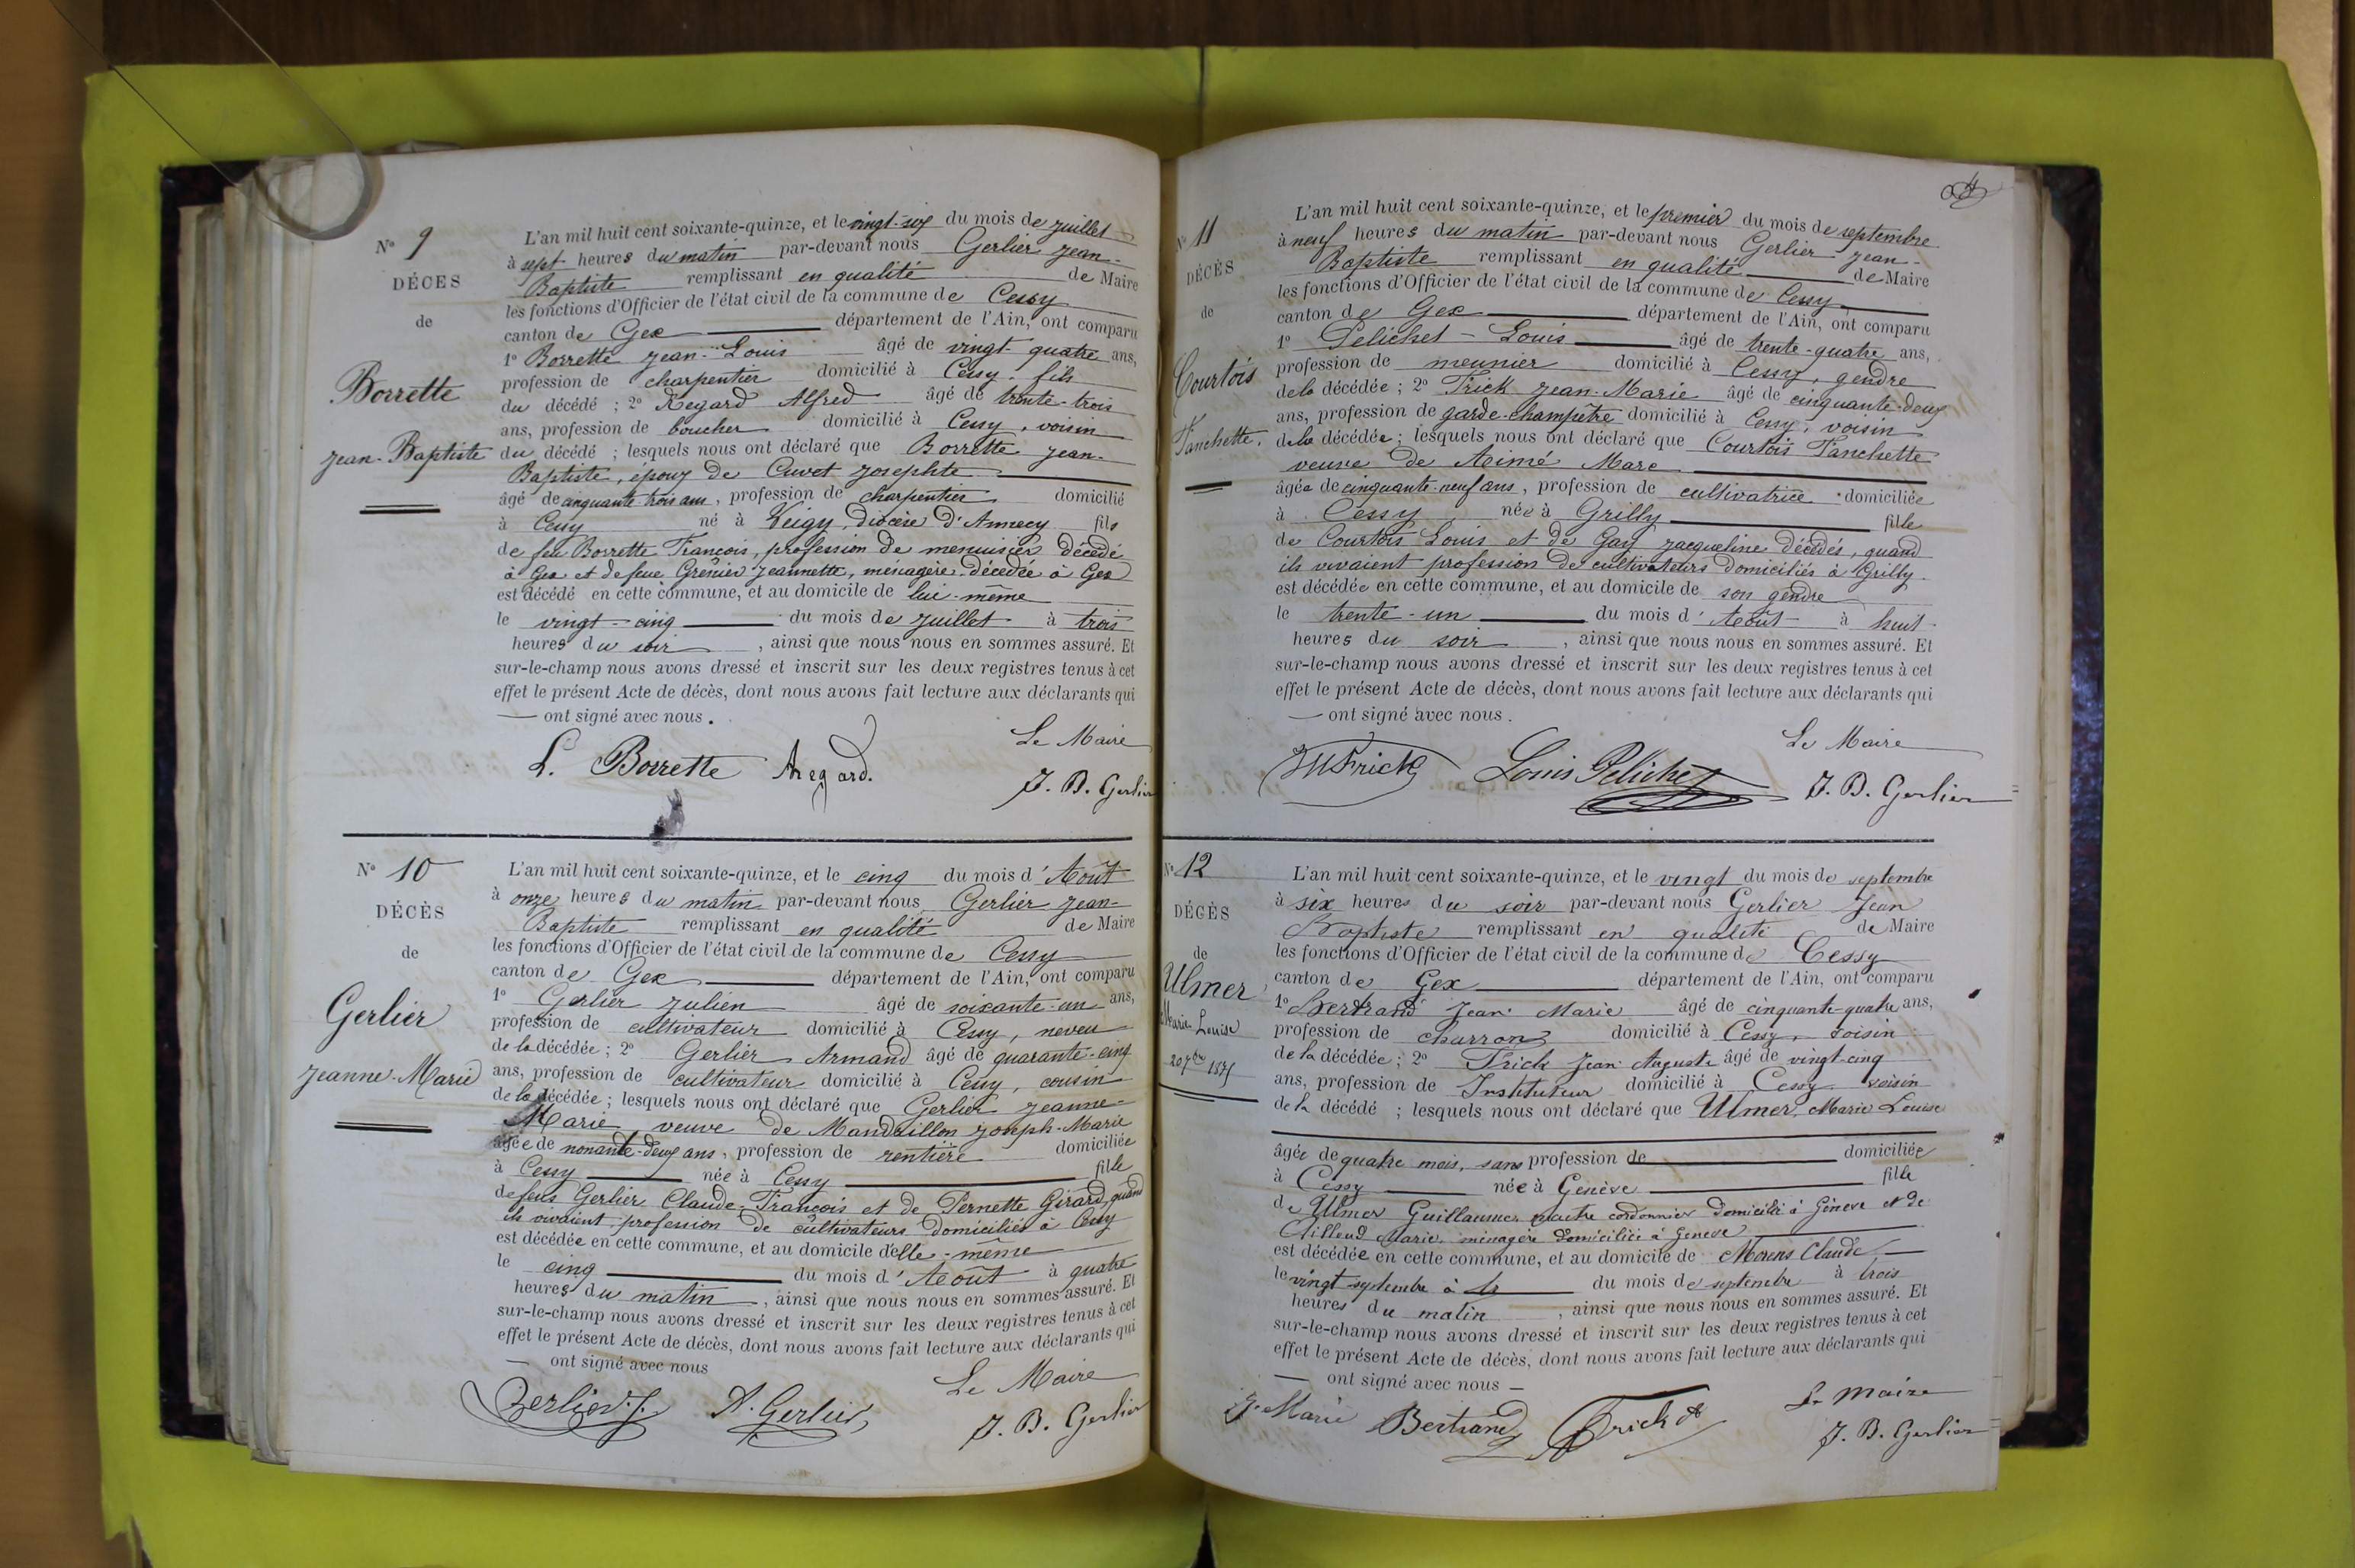 N° 9
DÉCÈS
de
Borrette
Jean-Baptiste
L'an mil huit cent soixante-quinze, et le vingt-six du mois de juillet
à sept heures du matin par-devant nous Gerlier Jean-
Baptiste remplissant en qualité de Maire
les fonctions d'Officier de l'état civil de la commune de Cessy
canton de Gex département de l'Ain, ont comparu
1° Borrette Jean-Louis âgé de vingt-quatre ans,
profession de charpentier domicilié à Cessy, fils
du décédé ; 2° Regard Alfred âgé de trente-trois
ans, profession de boucher domicilié à Cessy, voisin
du décédé ; lesquels nous ont déclaré que Borrette Jean-
Baptiste, époux de Cuvet Josephte
âgé de cinquante trois ans, profession de charpentier domicilié
à Cessy né à Veigy, diocèse d'Annecy fils
de feu Borrette François, profession de menuisier décédé
à Gex et de feue Grenier Jeannette, ménagère décédée à Gex
est décédé en cette commune, et au domicile de lui-même
le vingt-cinq du mois de juillet à trois
heures du soir, ainsi que nous nous en sommes assuré. Et
sur-le-champ nous avons dressé et inscrit sur les deux registres tenus à cet
effet le présent Acte de décès, dont nous avons fait lecture aux déclarants qui
— ont signé avec nous.
Le Maire
L. Borrette A Regard.
J. B. Gerlier
N° 10
DÉCÈS
de
Gerlier
Jeanne-Marie
L'an mil huit cent soixante-quinze, et le cinq du mois d'Août
à onze heures du matin par-devant nous Gerlier Jean-
Baptiste remplissant en qualité de Maire
les fonctions d'Officier de l'état civil de la commune de Cessy
canton de Gex département de l'Ain, ont comparu
1° Gerlier Julien âgé de soixante-un ans,
profession de cultivateur domicilié à Cessy, neveu
de la décédée ; 2° Gerlier Armand âgé de quarante-cinq
ans, profession de cultivateur domicilié à Cessy, cousin
de la décédée ; lesquels nous ont déclaré que Gerlier Jeanne-
Marie veuve de Mandrillon Joseph-Marie
âgée de nonante-deux ans, profession de rentière domiciliée
à Cessy née à Cessy fille
de feus Gerlier Claude-François et de Pernette Girard, quand
ils vivaient profession de cultivateurs domiciliés à Cessy
est décédée en cette commune, et au domicile d'elle-même
le cinq du mois d'Août à quatre
heures du matin, ainsi que nous nous en sommes assuré. Et
sur-le-champ nous avons dressé et inscrit sur les deux registres tenus à cet
effet le présent Acte de décès, dont nous avons fait lecture aux déclarants qui
— ont signé avec nous
Le Maire
Gerlier. J. A. Gerlier
J. B. Gerlier
N° 11
DÉCÈS
de
Courtois
Fanchette.
L'an mil huit cent soixante-quinze, et le premier du mois de septembre
à neuf heures du matin par-devant nous Gerlier Jean-
Baptiste remplissant en qualité de Maire
les fonctions d'Officier de l'état civil de la commune de Cessy
canton de Gex département de l'Ain, ont comparu
1° Pelichet-Louis âgé de trente-quatre ans,
profession de meunier domicilié à Cessy, gendre
de la décédée ; 2° Frick Jean-Marie âgé de cinquante-deux
ans, profession de garde-champêtre domicilié à Cessy, voisin
de la décédée ; lesquels nous ont déclaré que Courtois Fanchette
veuve de Aimé Marc
âgée de cinquante-neuf ans, profession de cultivatrice domiciliée
à Cessy née à Grilly fille
de Courtois Louis et de Gay Jacqueline décédés, quand
ils vivaient profession de cultivateurs domiciliés à Grilly
est décédée en cette commune, et au domicile de son gendre
le trente-un du mois d'Août à huit
heures du soir, ainsi que nous nous en sommes assuré. Et
sur-le-champ nous avons dressé et inscrit sur les deux registres tenus à cet
effet le présent Acte de décès, dont nous avons fait lecture aux déclarants qui
— ont signé avec nous.
Le Maire
JM Frick Louis Pelichet
J. B. Gerlier
N° 12
DÉCÈS
de
Ulmer
Marie Louise
20 7bre 1875
L'an mil huit cent soixante-quinze, et le vingt du mois de septembre
à six heures du soir par-devant nous Gerlier Jean
Baptiste remplissant en qualité de Maire
les fonctions d'Officier de l'état civil de la commune de Cessy
canton de Gex département de l'Ain, ont comparu
1° Bertrand Jean Marie âgé de cinquante-quatre ans,
profession de charron domicilié à Cessy, voisin
de la décédée ; 2° Frick Jean Auguste âgé de vingt-cinq
ans, profession de Instituteur domicilié à Cessy voisin
de la décédé ; lesquels nous ont déclaré que Ulmer, Marie Louise
âgée de quatre mois, sans profession de domiciliée
à Cessy née à Genève fille
de Ulmer Guillaume, maitre cordonnier domicilié à Génève et de
Marie, ménagère domiciliée à Genève
est décédée en cette commune, et au domicile de Morens Claude
le vingt septembre à du mois de septembre à trois
heures du matin, ainsi que nous nous en sommes assuré. Et
sur-le-champ nous avons dressé et inscrit sur les deux registres tenus à cet
effet le présent Acte de décès, dont nous avons fait lecture aux déclarants qui
— ont signé avec nous —
Le Maire
J. Marie Bertrand Frick A
J. B. Gerlier